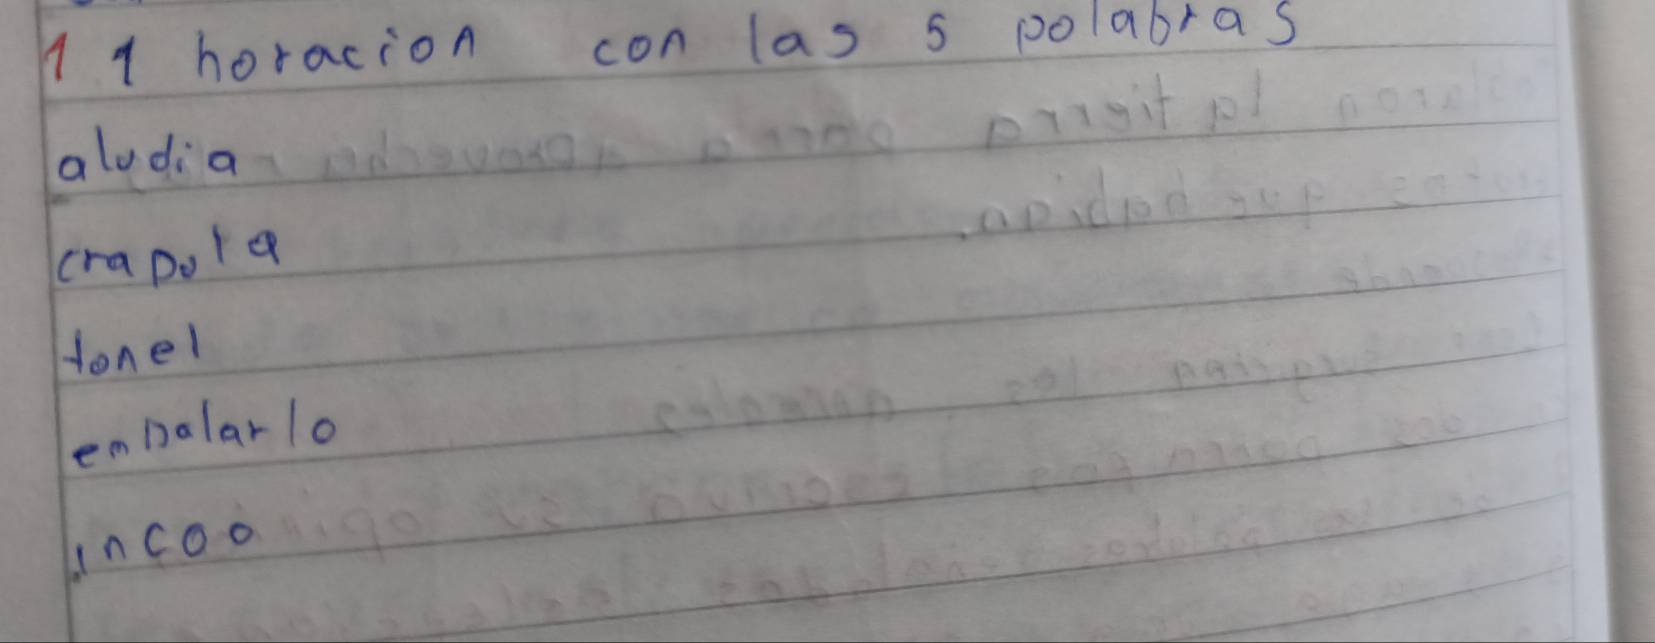 1 1 horacion con las 5 polabras
aludia
crapula
tonel
enbalarlo
incoo